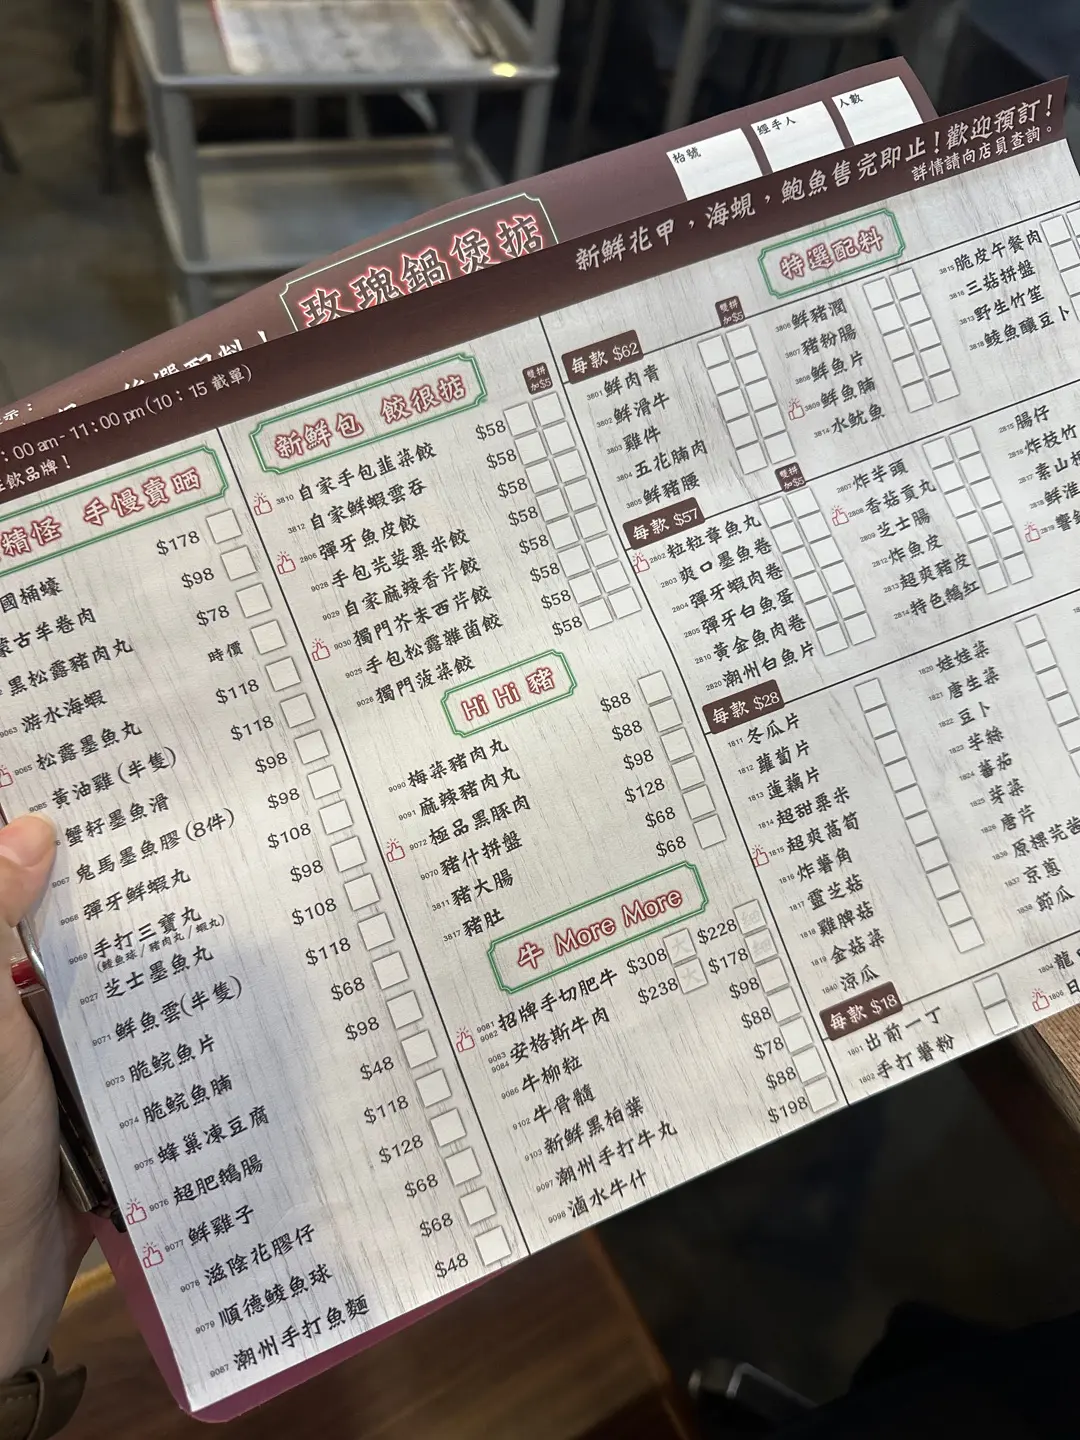 枱號
經手人
人數
玫瑰鍋煲掂
新鮮花甲，海蜆，鮑魚售完即止！歡迎預訂！
詳情請向店員查詢。
:00 am - 11:00 pm (10:15 截單)
飲品牌！
精怪 手慢賣晒
國桶蠔 $178
蒙古羊卷肉 $98
黑松露豬肉丸 $78
9063 游水海蝦 時價
9065 松露墨魚丸 $118
9085 黃油雞(半隻) $118
蟹籽墨魚滑 $98
9067 鬼馬墨魚膠(8件) $98
9068 彈牙鮮蝦丸 $108
9069 手打三寶丸 $98
(鯪魚球/豬肉丸/蝦丸)
9027 芝士墨魚丸 $108
9071 鮮魚雲(半隻) $118
9073 脆鯇魚片 $68
9074 脆鯇魚腩 $98
9075 蜂巢凍豆腐 $48
9076 超肥鵝腸 $118
9077 鮮雞子 $128
9078 滋陰花膠仔 $68
9079 順德鯪魚球 $68
9087 潮州手打魚麵 $48
新鮮包 餃很掂
雙拼
加$5
3810 自家手包韮菜餃 $58
3812 自家鮮蝦雲吞 $58
2806 彈牙魚皮餃 $58
9028 手包芫荽粟米餃 $58
9029 自家麻辣香芹餃 $58
9030 獨門芥末西芹餃 $58
9025 手包松露雜菌餃 $58
9026 獨門菠菜餃 $58
Hi Hi 豬
9090 梅菜豬肉丸 $88
9091 麻辣豬肉丸 $88
9072 極品黑豚肉 $98
9070 豬什拼盤 $128
3811 豬大腸 $68
3817 豬肚 $68
牛 More More
9081
9082 招牌手切肥牛 $308 大 $228
9083
9084 安格斯牛肉 $238 大 $178
9086 牛柳粒 $98
9102 牛骨髓 $88
9103 新鮮黑柏葉 $78
9097 潮州手打牛丸 $88
9098 滷水牛什 $198
特選配料
每款 $62
雙拼
加$5
3801 鮮肉青
3802 鮮滑牛
3803 雞件
3804 五花腩肉
3805 鮮豬腰
3806 鮮豬潤
3807 豬粉腸
3808 鮮魚片
3809 鮮魚腩
3814 水魷魚
3815 脆皮午餐肉
3816 三菇拼盤
3813 野生竹笙
3818 鯪魚釀豆卜
每款 $57
雙拼
加$5
2802 粒粒章魚丸
2803 爽口墨魚卷
2804 彈牙蝦肉卷
2805 彈牙白魚蛋
2810 黃金魚肉卷
2820 潮州白魚片
2807 炸芋頭
2808 香菇貢丸
2809 芝士腸
2812 炸魚皮
2813 超爽豬皮
2814 特色鵝紅
2815 腸仔
2816 炸枝竹
2817 素山
2818 鮮淮
2819 響鈴
每款 $28
1811 冬瓜片
1812 蘿蔔片
1813 蓮藕片
1814 超甜粟米
1815 超爽萵筍
1816 炸薯角
1817 靈芝菇
1818 雞脾菇
1819 金菇菜
1840 涼瓜
1820 娃娃菜
1821 唐生菜
1822 豆卜
1823 芋絲
1824 蕃茄
1825 芽菜
1826 唐芹
1836 原棵芫茜
1837 京蔥
1838 節瓜
每款 $18
1801 出前一丁
1802 手打薯粉
1804 龍
1806 日